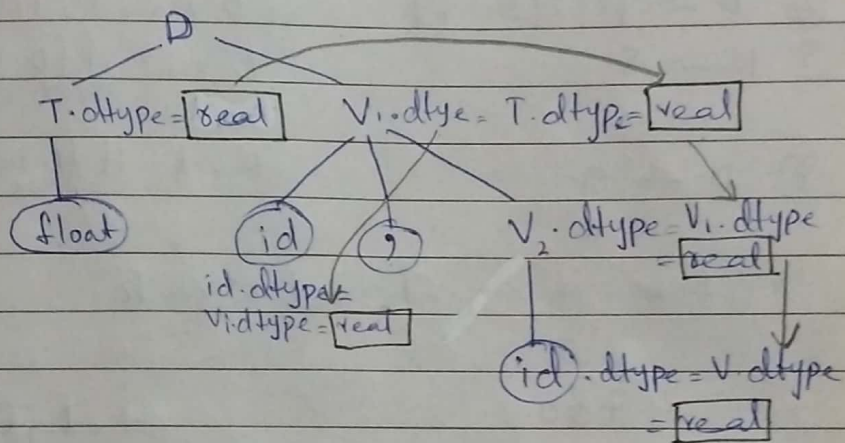 D
T.dtype = real V₁.dtye = T.dtype = real
float id , V₂.dtype = V₁.dtype
= real
id.dtype =
V₁.dtype = real
id .dtype = V.dtype
= real